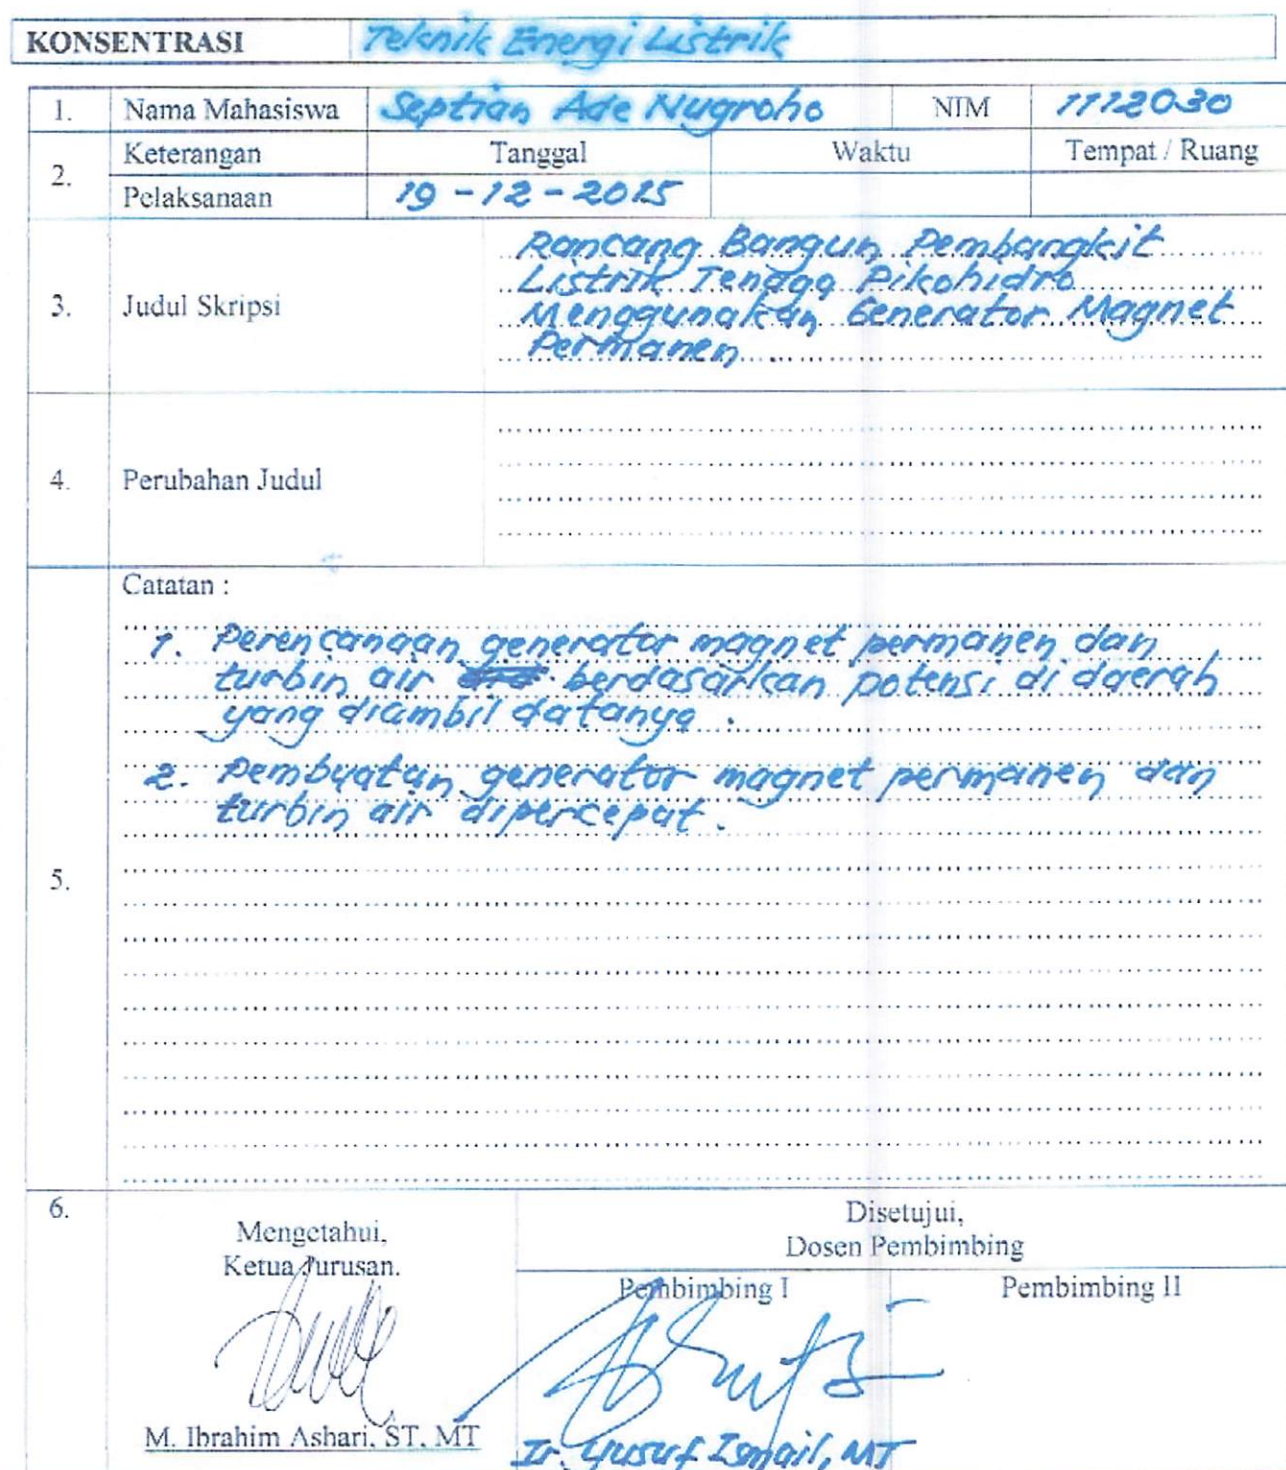 KONSENTRASI Teknik Energi Listrik
1. Nama Mahasiswa Septian Ade Nugroho NIM 1112030
2. Keterangan Tanggal Waktu Tempat / Ruang
Pelaksanaan 19 - 12 - 2015
3. Judul Skripsi
Rancang Bangun Pembangkit
Listrik Tenaga Pikohidro
Menggunakan Generator Magnet
Permanen.
4. Perubahan Judul
5. Catatan :
1. Perencanaan generator magnet permanen dan
turbin air berdasarkan potensi di daerah
yang diambil datanya.
2. Pembuatan generator magnet permanen dan
turbin air dipercepat.
6. Mengetahui,
Ketua Jurusan.
M. Ibrahim Ashari, ST, MT
Disetujui,
Dosen Pembimbing
Pembimbing I Pembimbing II
Ir. Yusuf Ismail, MT